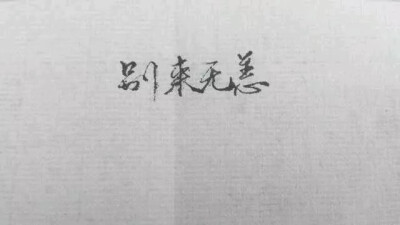 别来无恙